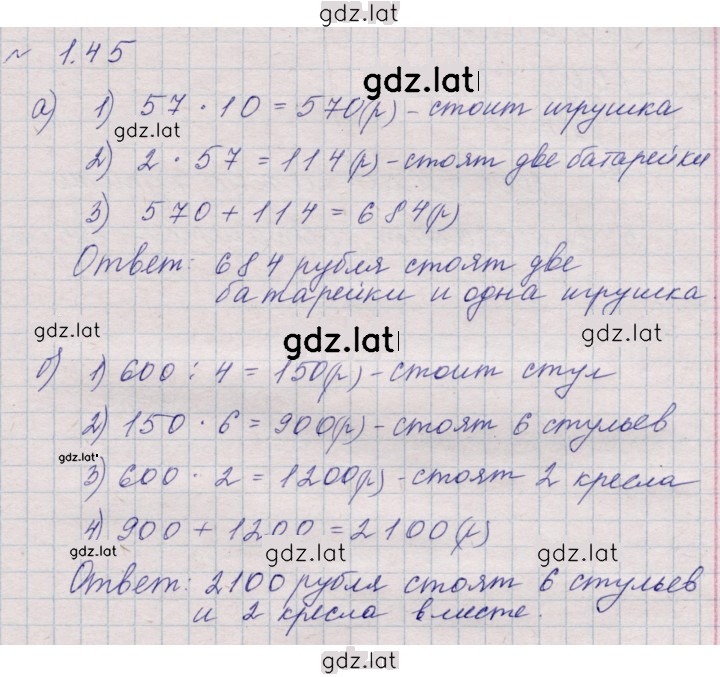 gdz.lat
№ 1.45
gdz.lat
а) 1) 57 · 10 = 570(р) - стоит игрушка
gdz.lat
2) 2 · 57 = 114(р) - стоят две батарейки
3) 570 + 114 = 684(р)
Ответ: 684 рубля стоят две
батарейки и одна игрушка.
gdz.lat
gdz.lat
gdz.lat
б) 1) 600 : 4 = 150(р) - стоит стул
2) 150 · 6 = 900(р) - стоят 6 стульев
gdz.lat
3) 600 · 2 = 1200(р) - стоят 2 кресла
4) 900 + 1200 = 2100(р)
gdz.lat
gdz.lat
gdz.lat
Ответ: 2100 рубля стоят 6 стульев
и 2 кресла вместе.
gdz.lat